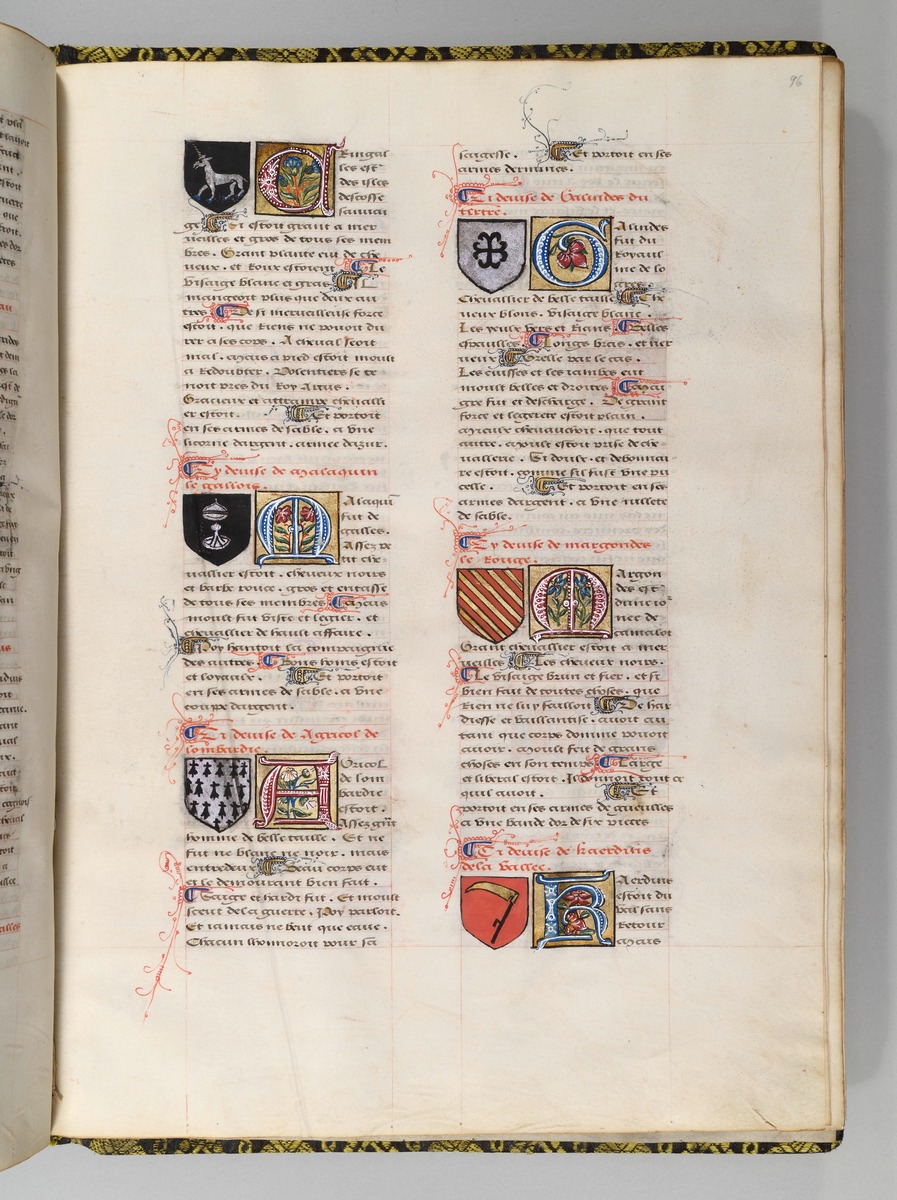 96
Ringal
les est
des isles
descosse
sauuai
ge Si estoit grant a mer
ueilles et gros de tous ses mem
bres. Grant plante eut de che
ueux. et Roux estoient Le
visaige blanc et gras Il
mangeoit plus que deux au
tres De si merueilleuse force
estoit. que Riens ne pouoit du
rer a ses cops. A cheual seoit
mal. Mais a pied estoit moult
a Redoubter. Voulentiers se te
noit pres du Roy Artus.
Gracieux et attrampe cheualli
er estoit. Et portoit
en ses armes de sable. a vne
licorne dargent. armee dazur.
Cy deuise de Malaquin
le gallois.
Malaquin
fut de
galles.
Assez pe
tit che
uallier estoit. cheueux noirs
et barbe rouce. gros et entasse
de tous ses membres Mais
moult fut viste et legier. et
cheuallier de hault affaire.
Poy hantoit la compaignie
des autres. Tous bons estoit
et loyaulx. Et portoit
en ses armes de sable. a vne
couppe dargent.
Ci deuise de Agricol de
lombardie.
AGricol
de lom
bardie
estoit.
Assez grant
homme de belle taille. Et ne
fut ne blanc ne noir. mais
entredeux Beau corps eut
et le demourant bien fait.
Saige et hardi fut. Et moult
sceut de la guerre. Poy parloit.
Et iamais ne beut que eaue.
Chacun lhonnoroit pour sa
saigesse. Et portoit en ses
armes dermines.
Ci deuise de Galindes du
tertre.
Galindes
fut du
Royaul
me de lo
gres
Cheuallier de belle taille Che
ueux blons. visaige blanc.
Les yeulx vers et Rians Belles
espaulles. Longs bras. et ner
ueux Grelle par le cas.
Les cuisses et les iambes eut
moult belles et droites Mai
gre fut et descharge. De grant
force et legerete estoit plain.
Mieulx cheuauchoit. que tout
autre. Moult estoit prise de che
uallerie. Si doulx et debonnai
re estoit. comme sil fust vne pu
celle. Et portoit en ses
armes dargent. a vne millete
de sable.
Cy deuise de margondes
le Rouge.
Margon
des est
dit et no
mee de
camalot
Grant cheuallier estoit a mer
ueilles Les cheueux noirs.
Le visaige brun et fier. et si
bien fait de toutes choses. que
Rien ne luy failloit De har
diesse et vaillantise. auoit au
tant que corps domme pouoit
auoir. Moult feit de grans
choses en son temps Large
et liberal estoit. Il donnoit tout ce
quil auoit. Et
portoit en ses armes de gueulles
a vne bande dor de six pieces
Ci deuise de kaerdins
de la vallee.
Kaerdins
estoit du
val sans
Retour
Mais